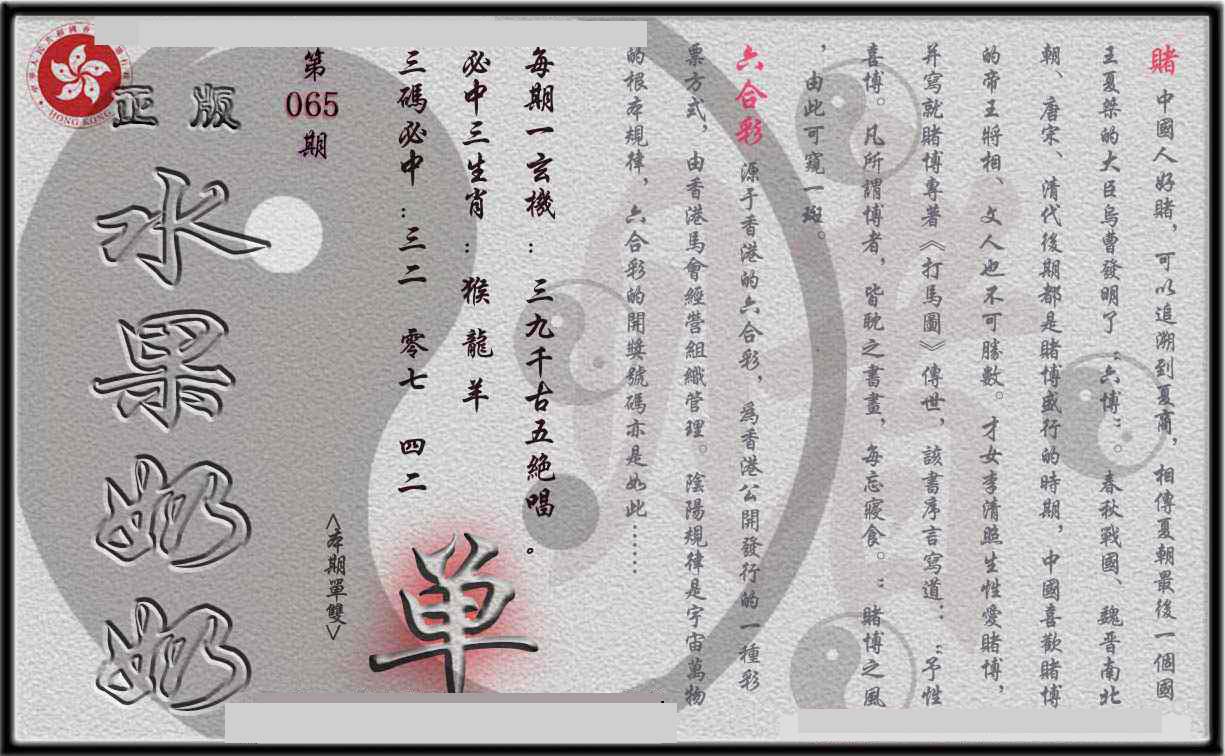 賭 中國人好賭，可以追溯到夏商，相傳夏朝最後一個國
王夏桀的大臣烏曹發明了“六博”。春秋戰國、魏晋南北
朝、唐宋、清代後期都是賭博盛行的時期，中國喜歡賭博
的帝王將相、文人也不可勝數。才女李清照生性愛賭博，
并寫就賭博專著《打馬圖》傳世，該書序言寫道：“予性
喜博。凡所謂博者，皆耽之書畫，每忘寢食。”賭博之風
，由此可窺一斑。
六合彩 源于香港的六合彩，為香港公開發行的一種彩
票方式，由香港馬會經營組織管理。陰陽規律是宇宙萬物
的根本規律，六合彩的開獎號碼亦是如此……
每期一玄機：三九千古五絕唱。
必中三生肖：猴 龍 羊
三碼必中：三二 零七 四二
单
<本期單雙>
第
065
期
正版
水果奶奶
HONG KONG